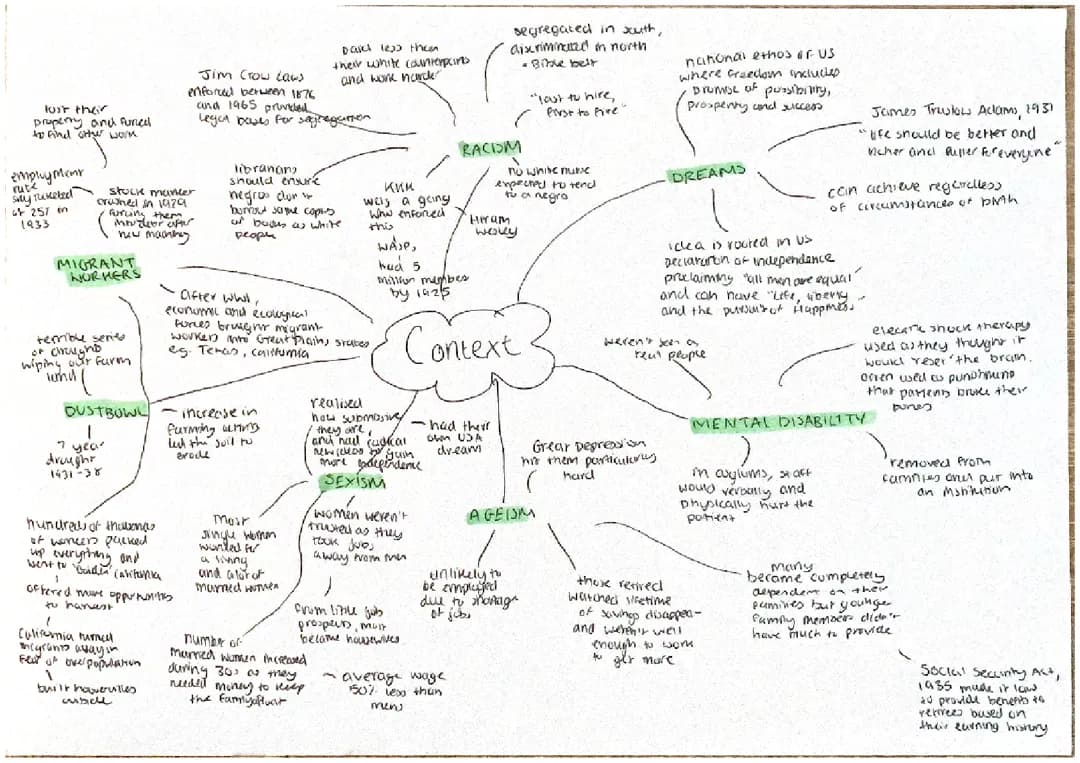 Context
RACISM
paid less than
their white counterparts
and work harder
segregated in south,
discriminated in north
• Bible belt
"last to hire,
first to fire"
no white nurse
expected to tend
to a negro
Jim Crow Laws
enforced between 1876
and 1965 provided
legal bases for segregation
librarians
should ensure
negros don't
borrow same copies
of books as white
people
KKK
was a gang
who enforced
this
Hiram
Wesley
WASP,
had 5
million members
by 1925
DREAMS
national ethos of US
where freedom includes
promise of possibility,
prosperity and success
James Truslow Adams, 1931
"life should be better and
richer and fuller for everyone"
can achieve regardless
of circumstances of birth
idea is rooted in US
declaration of independence
proclaiming "all men are equal"
and can have "life, liberty
and the pursuit of Happiness
MENTAL DISABILITY
weren't seen a
real people
electric shock therapy
used as they thought it
would 'reset' the brain.
often used as punishment
that patients broke their
bones
in asylums, staff
would verbally and
physically hurt the
patient
removed from
families and put into
an institution
AGEISM
Great Depression
hit them particularly
hard
unlikely to
be employed
due to shortage
of jobs
those retired
watched lifetime
of savings disappear
and weren't well
enough to work
to get more
many
became completely
dependent on their
families but younger
family members didn't
have much to provide
Social Security Act,
1935 made it law
to provide benefits to
retirees based on
their earning history
SEXISM
realised
how submissive
they are,
and had radical
new ideas to gain
more independence
had their
own USA
dream
most
single women
worked for
a living
and a lot of
married women
women weren't
trusted as they
took jobs
away from men
from little job
prospects, most
became housewives
number of
married women increased
during 30s as they
needed money to keep
the family afloat
average wage
50% less than
mens
DUSTBOWL
terrible series
of droughts
wiping out farm
land
7 year
drought
1931-38
increase in
farming activity
led the soil to
erode
MIGRANT
WORKERS
lost their
property and forced
to find other work
employment
rate
sky rocketed
at 25% in
1933
stock market
crashed in 1929
forcing them
new machinery
After WWI,
economic and ecological
forces brought migrant
workers into Great Plains states
e.g. Texas, California
hundreds of thousands
of workers packed
up everything and
went to 'Golden' California
offered more opportunities
to harvest
California turned
migrants away in
fear of overpopulation
built hoovervilles